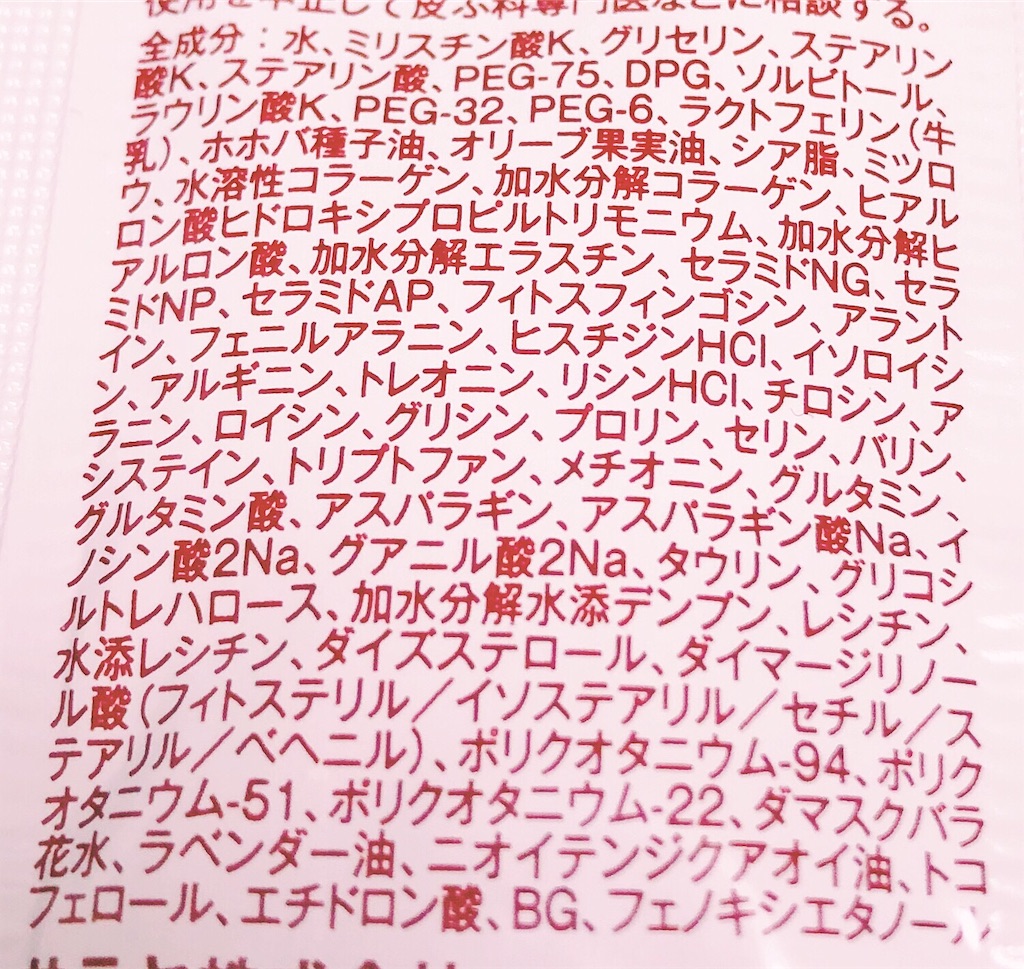 使用を中止して皮ふ科専門医などに相談する。
全成分：水、ミリスチン酸K、グリセリン、ステアリン
酸K、ステアリン酸、PEG-75、DPG、ソルビトール、
ラウリン酸K、PEG-32、PEG-6、ラクトフェリン（牛
乳）、ホホバ種子油、オリーブ果実油、シア脂、ミツロ
ウ、水溶性コラーゲン、加水分解コラーゲン、ヒアル
ロン酸ヒドロキシプロピルトリモニウム、加水分解ヒ
アルロン酸、加水分解エラスチン、セラミドNG、セラ
ミドNP、セラミドAP、フィトスフィンゴシン、アラント
イン、フェニルアラニン、ヒスチジンHCl、イソロイシ
ン、アルギニン、トレオニン、リシンHCl、チロシン、ア
ラニン、ロイシン、グリシン、プロリン、セリン、バリン、
システイン、トリプトファン、メチオニン、グルタミン、
グルタミン酸、アスパラギン、アスパラギン酸Na、イ
ノシン酸2Na、グアニル酸2Na、タウリン、グリコシ
ルトレハロース、加水分解水添デンプン、レシチン、
水添レシチン、ダイズステロール、ダイマージリノー
ル酸（フィトステリル／イソステアリル／セチル／ス
テアリル／ベヘニル）、ポリクオタニウム-94、ポリク
オタニウム-51、ポリクオタニウム-22、ダマスクバラ
花水、ラベンダー油、ニオイテンジクアオイ油、トコ
フェロール、エチドロン酸、BG、フェノキシエタノール